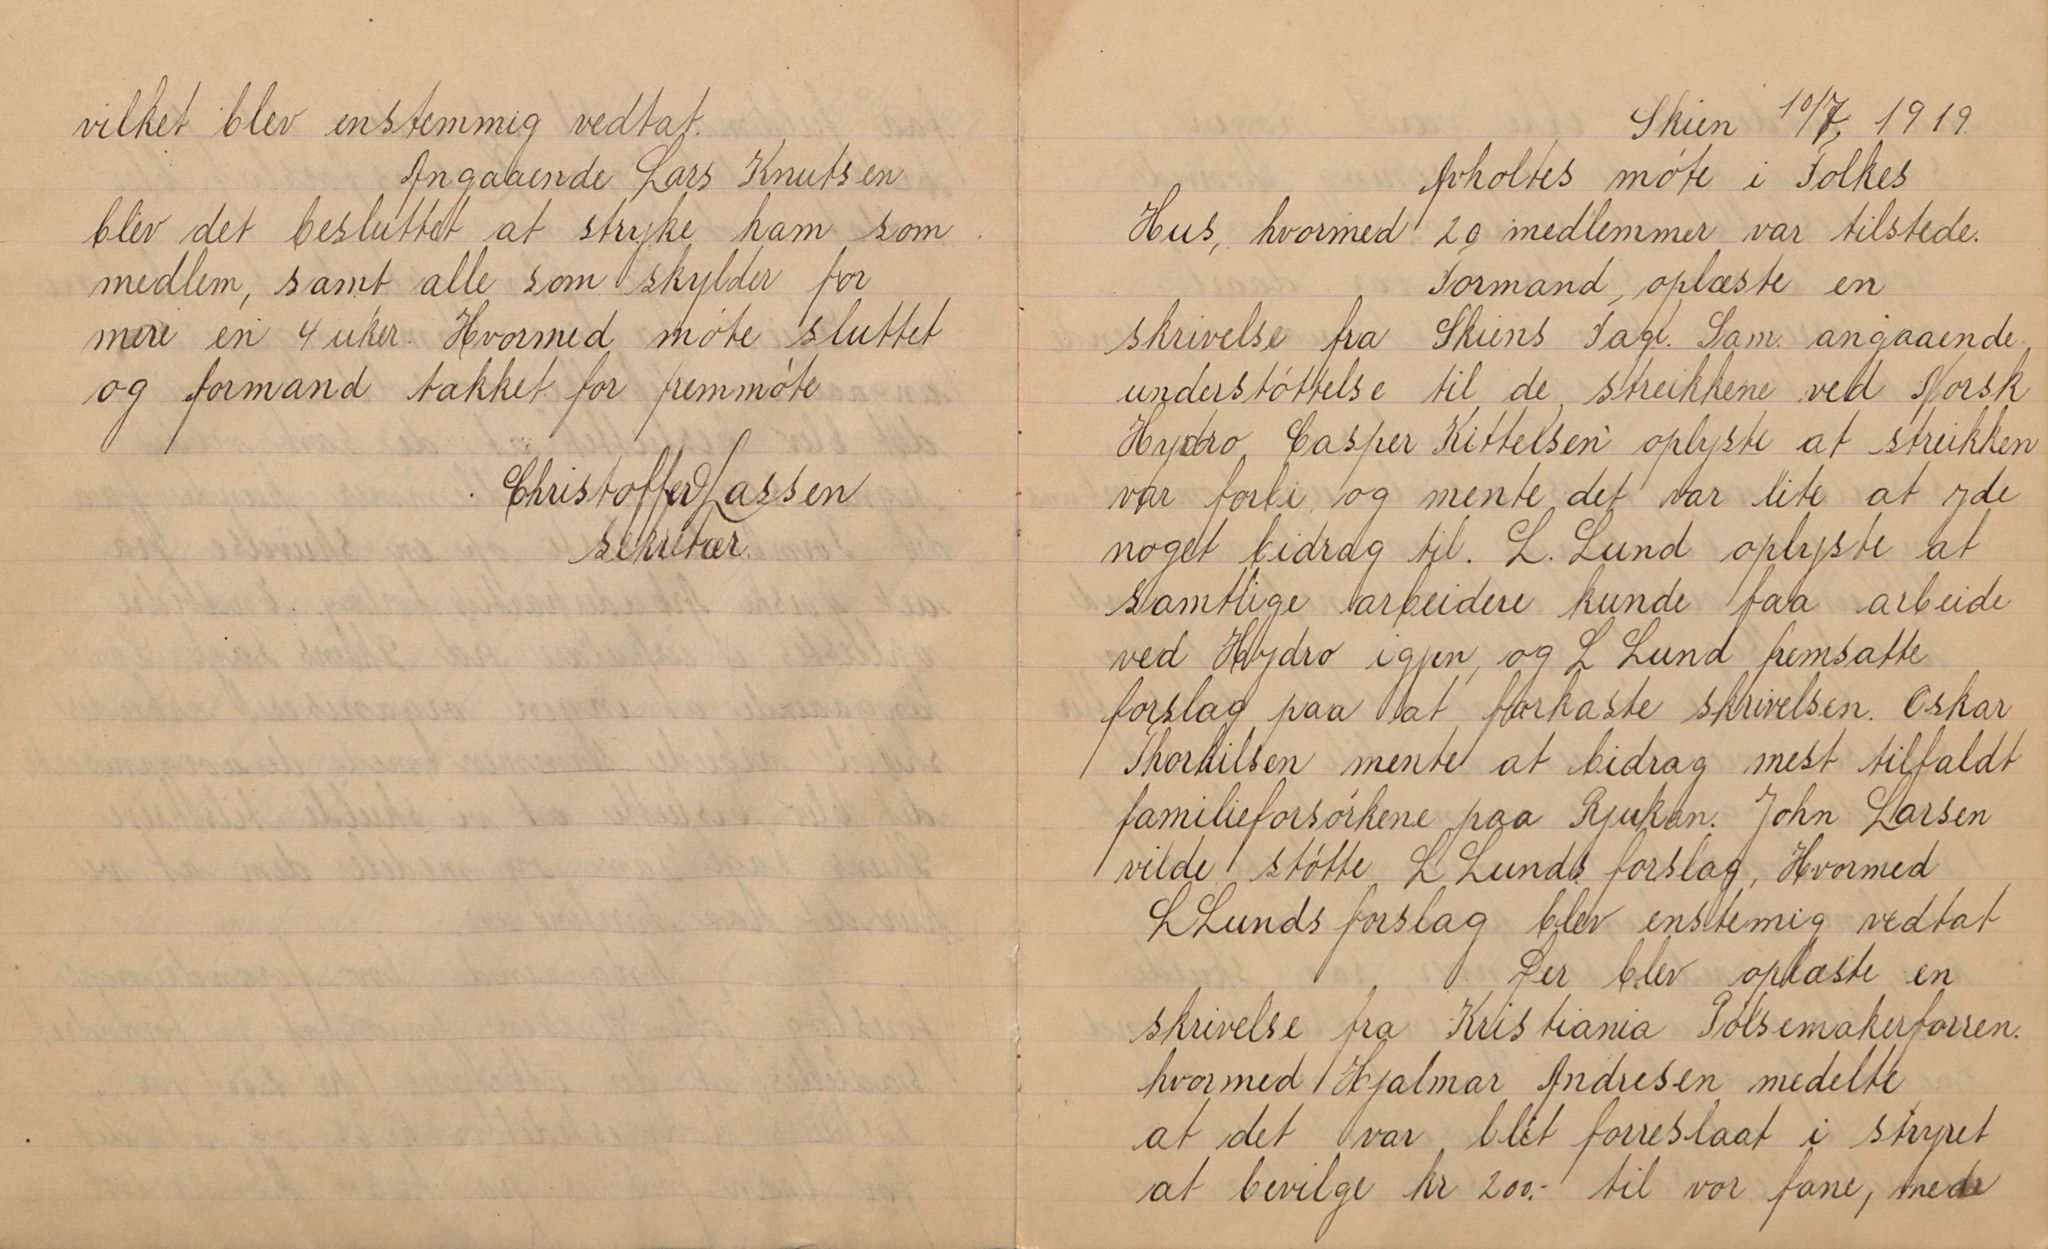 vilket blev enstemmig vedtat.
Angaaende Lars Knutsen
blev det besluttet at stryke ham som
medlem, samt alle som skylder for
mere en 4 uker. Hvormed móte sluttet
og formand takket for fremmóte
Christoffer Lassen
sekretær.
Skien 10/7, 1919
Avholtes móte i Folkes
Hus, hvormed 20 medlemmer var tilstede.
Formand, oplæste en
skrivelse fra Skiens Fagl. Sam. angaaende
understóttelse til de streikkene ved Norsk
Hydro Casper Kittelsen oplyste at streikken
var forbi, og mente det var lite at yde
noget bidrag til. L. Lund oplyste at
samtlige arbeidere kunde faa arbeide
ved Hydro igjen, og L Lund fremsatte
forslag paa at forkaste skrivelsen. Oskar
Thorkilsen mente at bidrag mest tilfaldt
familieforsórkene paa Rjukan. John Larsen
vilde stótte L Lunds forslag, Hvormed
L Lunds forslag blev enstemig vedtat
Der blev oplæste en
skrivelse fra Kristiania Pólsemakerforren.
hvormed Hjalmar Andresen medelte
at det var blit forreslaat i stryret
at bevilge kr 200.- til vor fane, mede